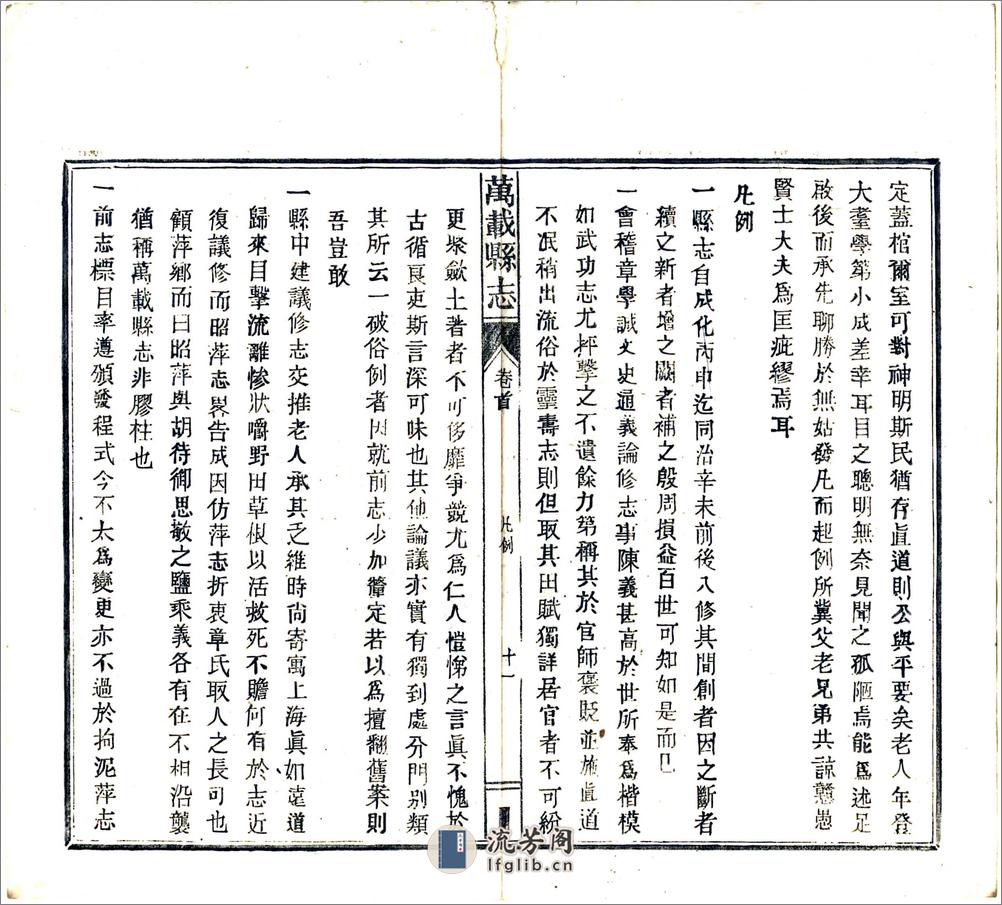 定蓋棺爾室可對神明斯民猶存眞道則公與平要矣老人年登
大耋學第小成差幸耳目之聰明無奈見聞之孤陋焉能爲述足
啟後而承先聊勝於無姑發凡而起例所冀父老兄弟共諒戇愚
賢士大夫爲匡疵繆焉耳
凡例
一縣志自成化丙申迄同治辛未前後八修其間創者因之斷者
續之新者增之闕者補之殷周損益百世可知如是而已
一會稽章學誠文史通義論修志事陳義甚高於世所奉爲楷模
如武功志尤抨擊之不遺餘力第稱其於官師褒貶並施直道
不泯稍出流俗於靈壽志則但取其田賦獨詳居官者不可紛
萬載縣志
卷首
凡例
十一
更聚斂土著者不可侈靡爭競尤爲仁人愷悌之言眞不愧於
古循良吏斯言深可味也其他論議亦實有獨到處分門別類
其所云一破俗例者因就前志少加釐定若以爲擅翻舊案則
吾豈敢
一縣中建議修志交推老人承其乏維時尙寄寓上海眞如遠道
歸來目擊流離慘狀嚼野田草根以活救死不贍何有於志近
復議修而昭萍志畧告成因仿萍志折衷章氏取人之長可也
顧萍鄉而曰昭萍與胡待御思敬之鹽乘義各有在不相沿襲
猶稱萬載縣志非膠柱也
一前志標目率遵頒發程式今不太爲變更亦不過於拘泥萍志
流芳阁
lfglib.cn